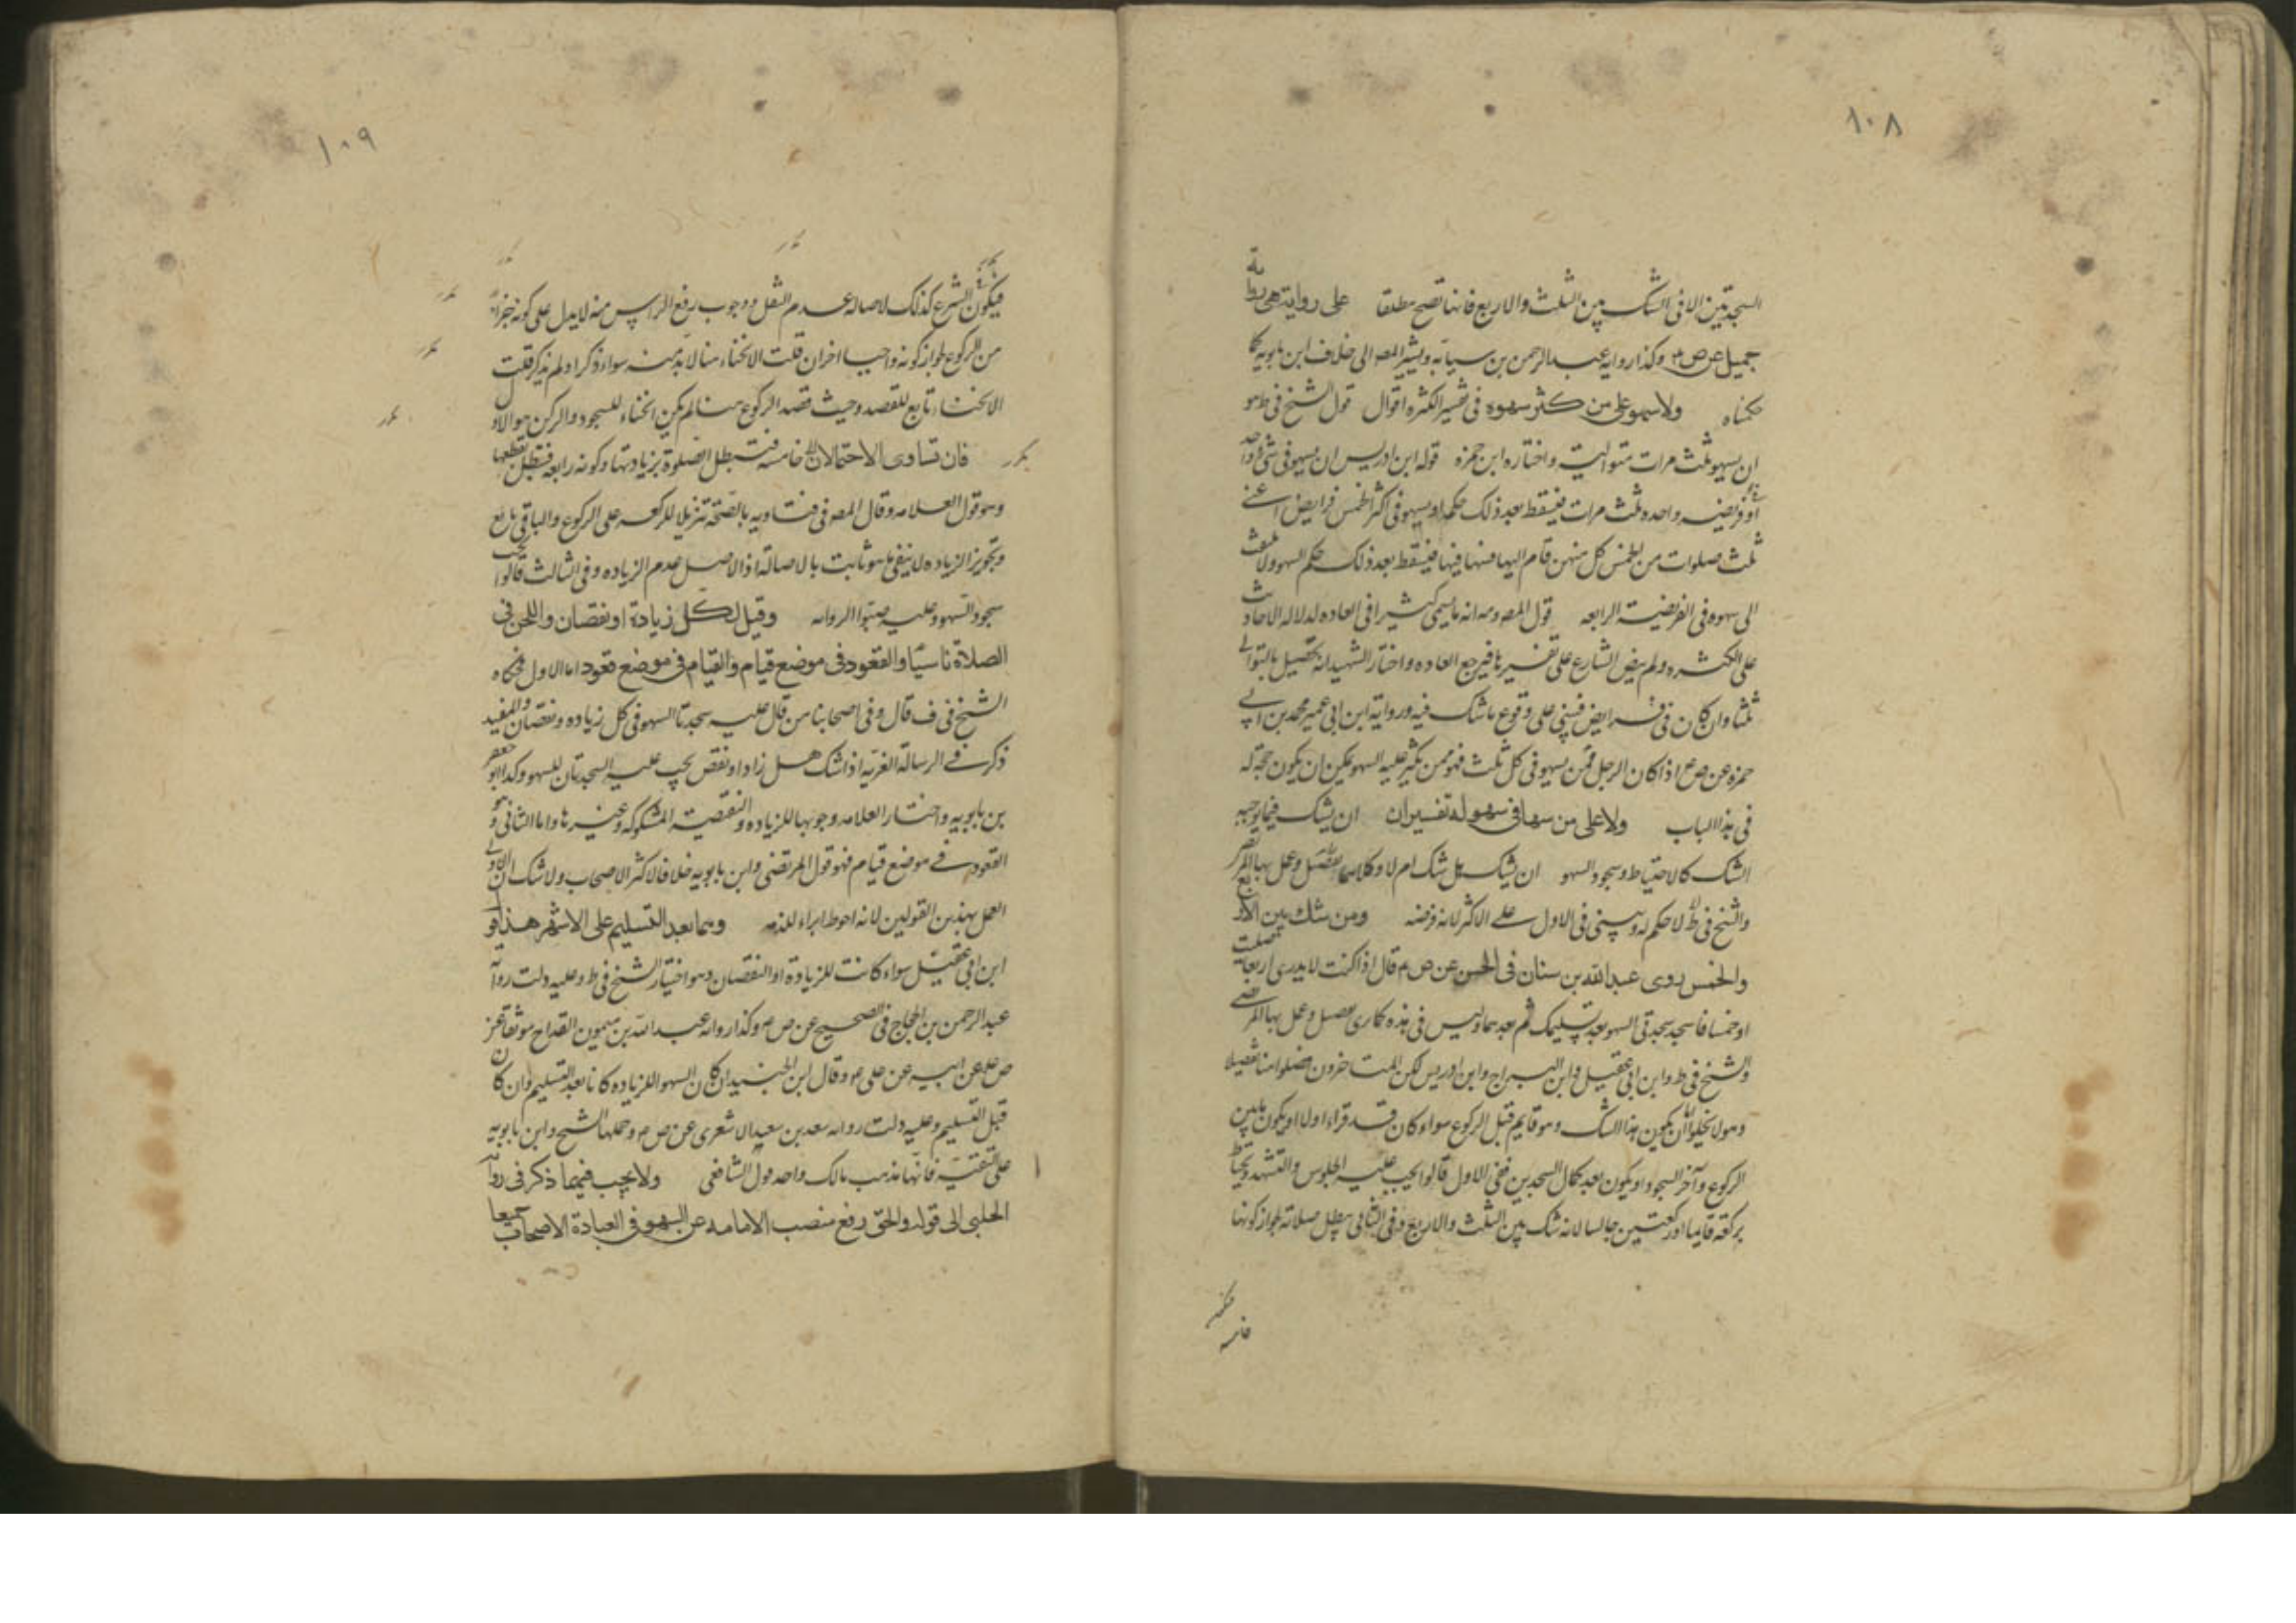 ١٠٨
السجدتين الا فى الشك بين الثلث والاربع فانها تصح مطلقا على رواية هى رواية
جميل عن ص م وكذا رواية عبد الرحمن بن سيابه ويشير المص الى خلاف ابن بابويه كما
حكيناه ولا سهو على من كثر سهوه فى تفسير الكثره اقوال قول الشيخ فى ط هو
ان يسهو ثلث مرات متوالية واختاره ابن حمزه قوله ابن ادريس ان يسهو فى شئ واحد
او فريضه واحده ثلث مرات فيسقط بعد ذلك حكمه او يسهو فى اكثر الخمس فرايض اعنى
ثلث صلوات من الخمس كل منهن قام اليها فسها فيها فيسقط بعد ذلك حكم السهو ولا يلتفت
الى سهوه فى الفريضة الرابعه قول المص ومه انه ما يسمى كثيرا فى العاده لدلاله الاحاديث
على الكثره ولم ينص الشارع على تفسيرها فيرجع العاده واختار الشهيد انه تحصيل بالتوالى
ثلثا وان كان فى فرايض فيبنى على وقوع ما شك فيه ورواية ابن ابى عمير محمد بن ابى
حمزه عن ص ع اذا كان الرجل ممن يسهو فى كل ثلث فهو ممن يكثر عليه السهو يمكن ان يكون حجة له
فى هذا الباب ولا على من سها فى سهو له تفسيران ان يشك فيما يوجبه
الشك كالاحتياط وسجود السهو ان يشك هل شك ام لا وكلاهما
والشيخ فى ط لا حكم له ويبنى فى الاول على الاكثر لانه فرضه ومن شك بين الاربع
والخمس روى عبد الله بن سنان فى الحسن عن ص م قال اذا كنت لا تدرى اربعا صليت
او خمسا فاسجد سجدتى السهو بعد تسليمك ثم بعدهما وليس فى هذه كما ترى تفصيل وعمل بها المرتضى
والشيخ فى ط وابن ابى عقيل وابن البراج وابن ادريس لكن المتاخرون فصلوا هنا تفصيلا
وهو لا يخلو اما ان يكون هذا الشك وهو قايم قبل الركوع سواء كان قد قراء اولا او يكون بين
الركوع وآخر السجود او يكون بعد كمال السجدتين ففى الاول قالوا يجب عليه الجلوس والتشهد ويحتاط
بركعة قايما او ركعتين جالسا لانه شك بين الثلث والاربع وفى الثانى يبطل صلاته لجواز كونها
خامسه
١٠٩
فيكون الشرع كذلك لاصاله عدم النقل ووجوب رفع الراس منه لا يدل على كونه جزاء
من الركوع لجواز كونه واجبا اخر ان قلت الانحناء هنا لا بد منه سواء ذكر او لم يذكر قلت
الانحناء تابع للقصد وحيث قصد الركوع هنا لم يكن انحناء للسجود والركن هو الاول
فان تساوى الاحتمالان خامسه فتبطل الصلوة بزيادتها وكونه رابعه فتبطل بقطعها
وهو قول العلامه وقال المص فى فتاويه بالصحة تنزيلا للركعه على الركوع والباقى تابع
وتجويز الزياده لا ينفى ما هو ثابت بالاصالة اذ الاصل عدم الزياده وفى الثالث قالوا يجب
سجود السهو وعليه الروايه وقيل لكل زيادة او نقصان واللحن فى
الصلاة ناسيا والقعود فى موضع قيام والقيام فى موضع قعود اما الاول فحكاه
الشيخ فى ف قال وفى اصحابنا من قال عليه سجدتا السهو فى كل زياده ونقصان والمفيد
ذكر فى الرسالة الغريه اذا شك هل زاد او نقص يجب عليه السجدتان للسهو وكذا ابو جعفر
بن بابويه واختار العلامه وجوبها للزياده والنقصية المشكوكه وغيرها واما الثانى وهو
القعود فى موضع قيام فهو قول المرتضى وابن بابويه خلافا لاكثر الاصحاب ولا شك ان الاولى
العمل بهذين القولين لانه احوط ابراء للذمه وهما بعد التسليم على الاشهر هذا قول
ابن ابى عقيل سواء كانت للزيادة او النقصان وهو اختيار الشيخ فى ط وعليه دلت رواية
عبد الرحمن بن الحجاج فى الصحيح عن ص م وكذا رواه عبد الله بن ميمون القداح موثقا عن
ص ع عن ابيه عن على م وقال ابن الجنيد ان كان السهو للزياده كانا بعد التسليم وان كان
قبل التسليم وعليه دلت روايه سعد بن سعيد الاشعرى عن ص م وحملها الشيخ وابن بابويه
على التقية فانها مذهب مالك واحد قول الشافعى ولا يجب فيهما ذكر فى رواية
الحلبى الى قوله والحق رفع منصب الامامه عن السهو فى العبادة الاصحاب جميعا